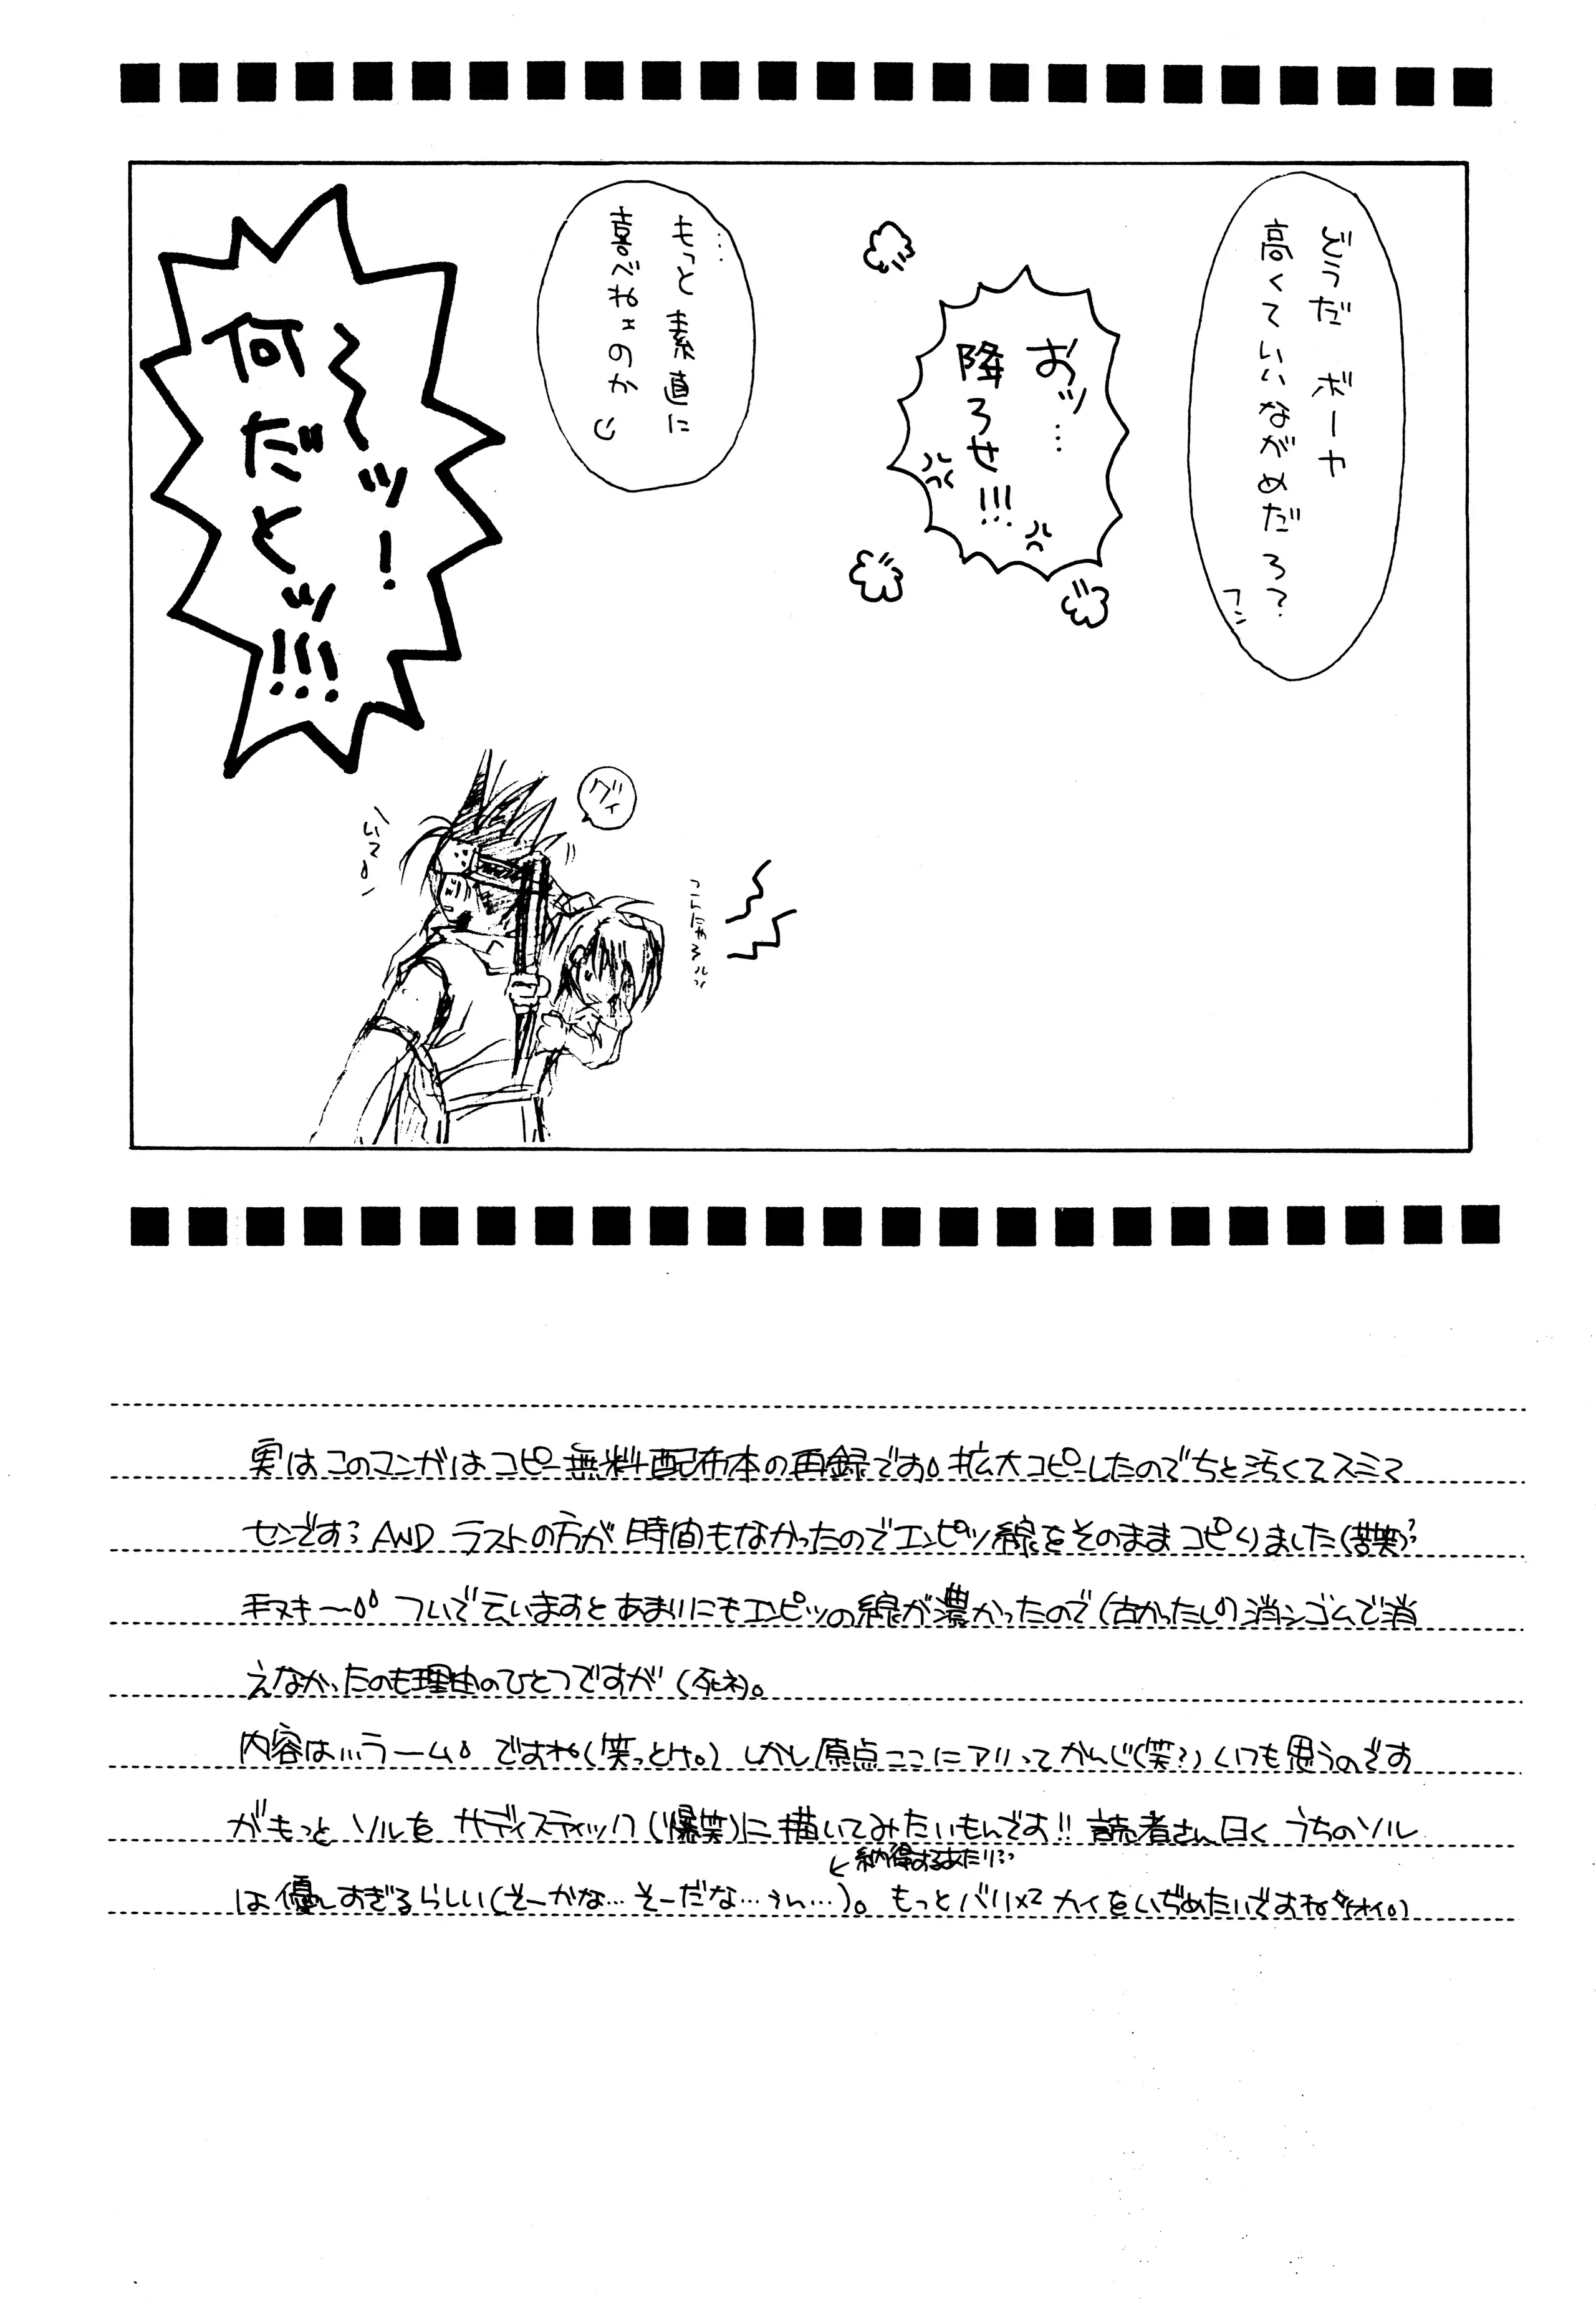 どうだ ボーヤ
高くていいながめだろ?
フン
おッ…
降ろせ!!!
…もっと素直に
喜べねェのか
〜〜ッ!
何だとッ!!!
グイ
いてっ
こんにゃろ
実はこのマンガはコピー無料配布本の再録です。拡大コピーしたのでちと汚くてスミマ
センです AND ラストの方が時間もなかったのでエンピツ線をそのままコピりました(苦笑)
手ヌキ〜 ついでで云いますとあまりにもエンピツの線が濃かったので(古かったし)消シゴムで消
えなかったのも理由のひとつですが(死ネ)。
内容は…ラーム。ですね(笑っとけ。)しかし原点ここにアリってかんじ(笑?)いつも思うのです
がもっと ソルを サディスティック(爆笑)に描いてみたいもんです!! 読者さん曰く うちのソル
←納得するあたり
は優しすぎるらしい(そーかな…そーだな…うん…)。もっとバリ×2 カイをいぢめたいですね(オイ。)